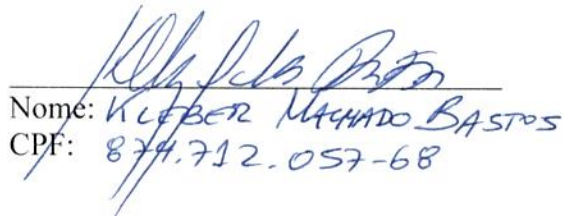 Nome: KLEBER MACHADO BASTOS
CPF: 874.712.057-68